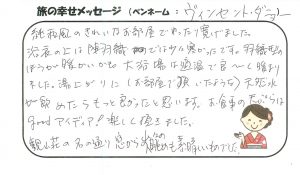 旅の幸せメッセージ (ペンネーム : ヴィンセント・ダラー )
純和風のきれいなお部屋でゆったり寛げました。
浴衣の上には陣羽織 では少し寒かったです。羽織型の
ほうが暖かいかも 大浴場は適温で良〜く暖まり
ました。湯上がりに(お部屋で頂いたような)天然水
が飲めたらもっと良かったと思います。お食事の天ぷらは
goodアイディア!楽しく頂きました。
観山荘の名の通り窓からの眺めも素晴しいものでした。